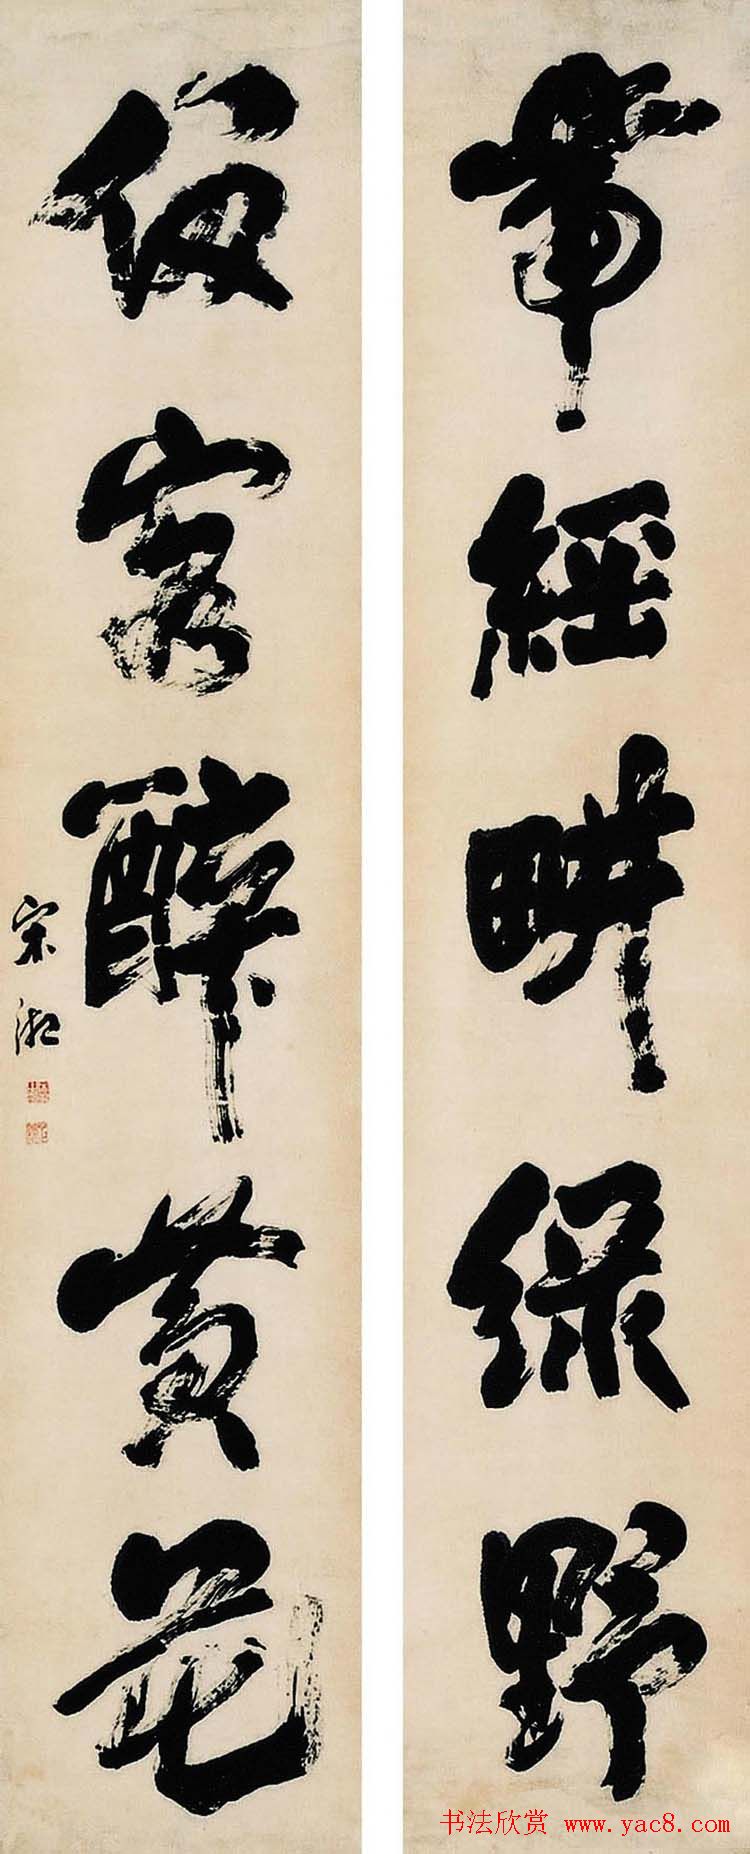 帶經畊綠野
留客醉黃花
宋湘
书法欣赏 www.yac8.com